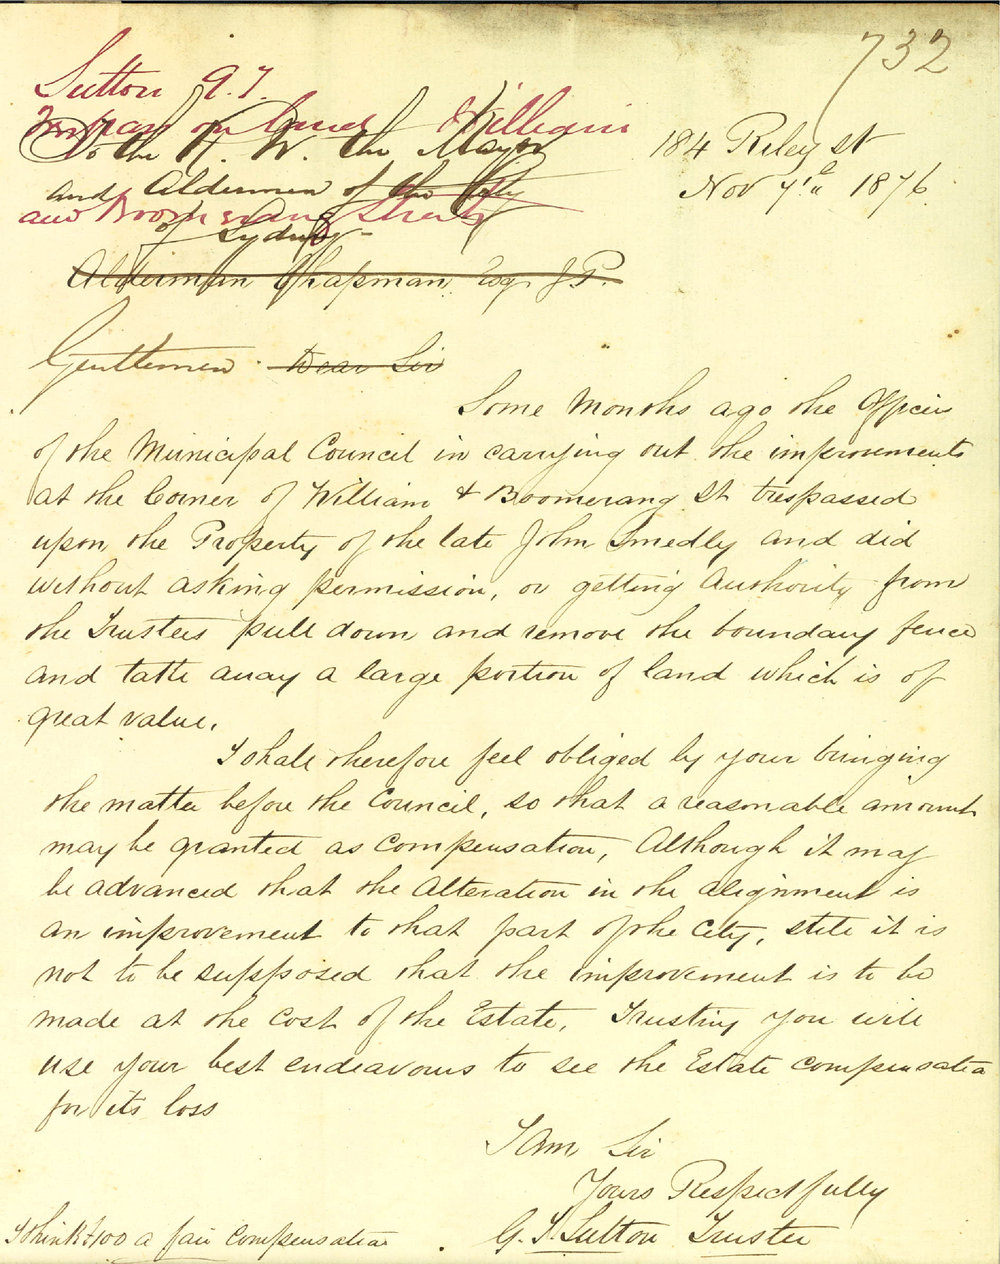 732
Sutton G. T.
on land William
To the R. W. the Mayor
and Aldermen of the City
and Boomerang Streets
of Sydney
184 Riley St
Nov 7th 1876
Alderman Chapman Esq J.P.
Gentlemen Dear Sir
Some Months ago the Officers
of the Municipal Council in carrying out the improvements
at the Corner of William & Boomerang St trespassed
upon the Property of the late John Smedly and did
without asking permission, or getting Authority from
the Trustees pull down and remove the boundary fence
and take away a large portion of land which is of
great value.
I shall therefore feel obliged by your bringing
the matter before the Council, so that a reasonable amount
may be granted as Compensation, Although it may
be advanced that the Alteration in the alignment is
an improvement to that part of the City, still it is
not to be supposed that the improvement is to be
made at the Cost of the Estate, Trusting you will
use your best endeavours to see the Estate compensated
for its loss
I Am Sir
Yours Respectfully
G. T. Sutton Trustee
I think £100 a fair Compensation